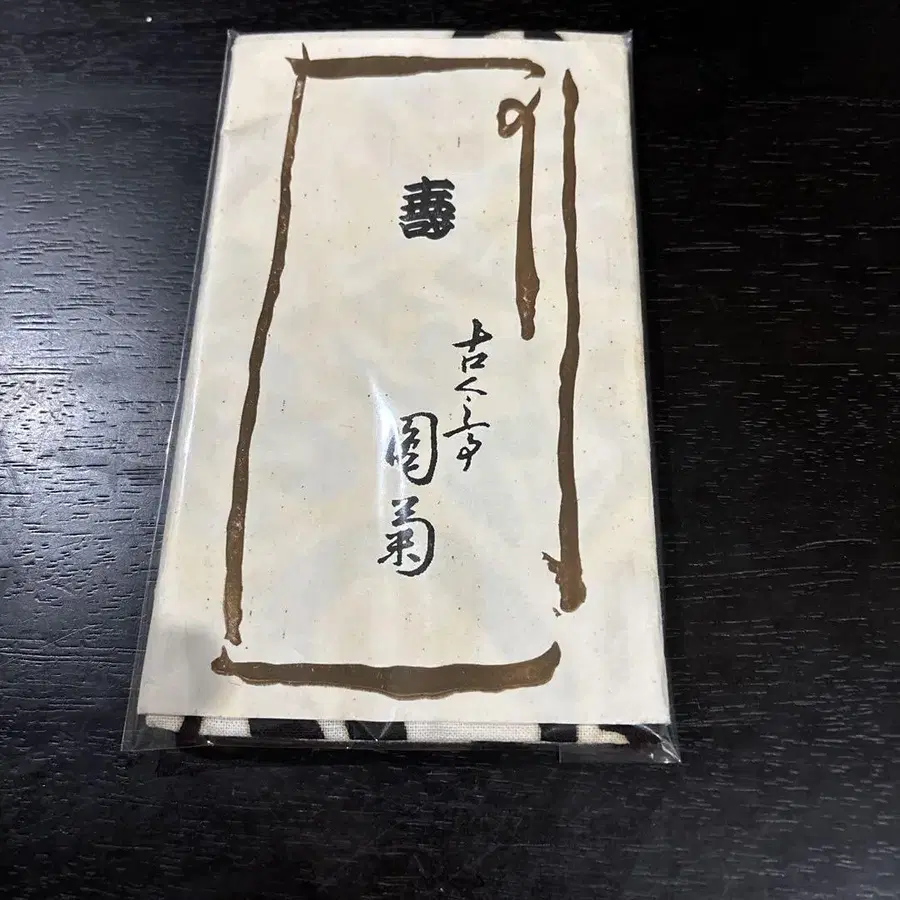 壽
古今亭
圓菊